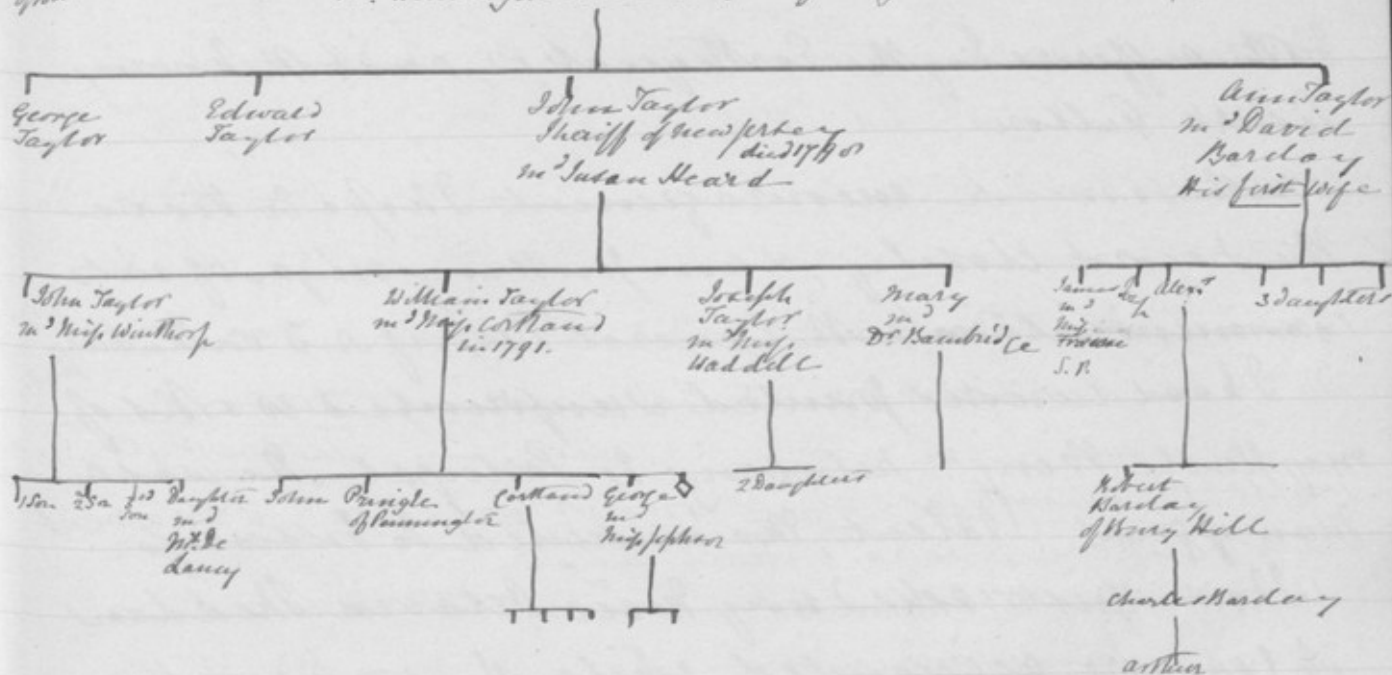 George
Taylor
Edward
Taylor
John Taylor
Sheriff of New Jersey
died 1798
md Susan Heard
Ann Taylor
md David
Barclay
His first wife
John Taylor
md Miss Winthorp
William Taylor
md Miss Cortland
in 1791.
Joseph
Taylor
md Miss
Waddell
Mary
md
Dr Bambridge
James
md
Miss
S. P.
Alexr
3 Daughters
1 Son
2d Son
3rd
Son
Daughter
md
Mr. De
Lancy
John
Pringle
of Pennington
Cortland
George
md
Miss Jephson
2 Daughters
Robert
Barclay
of Bury Hill
Charles Barclay
Arthur